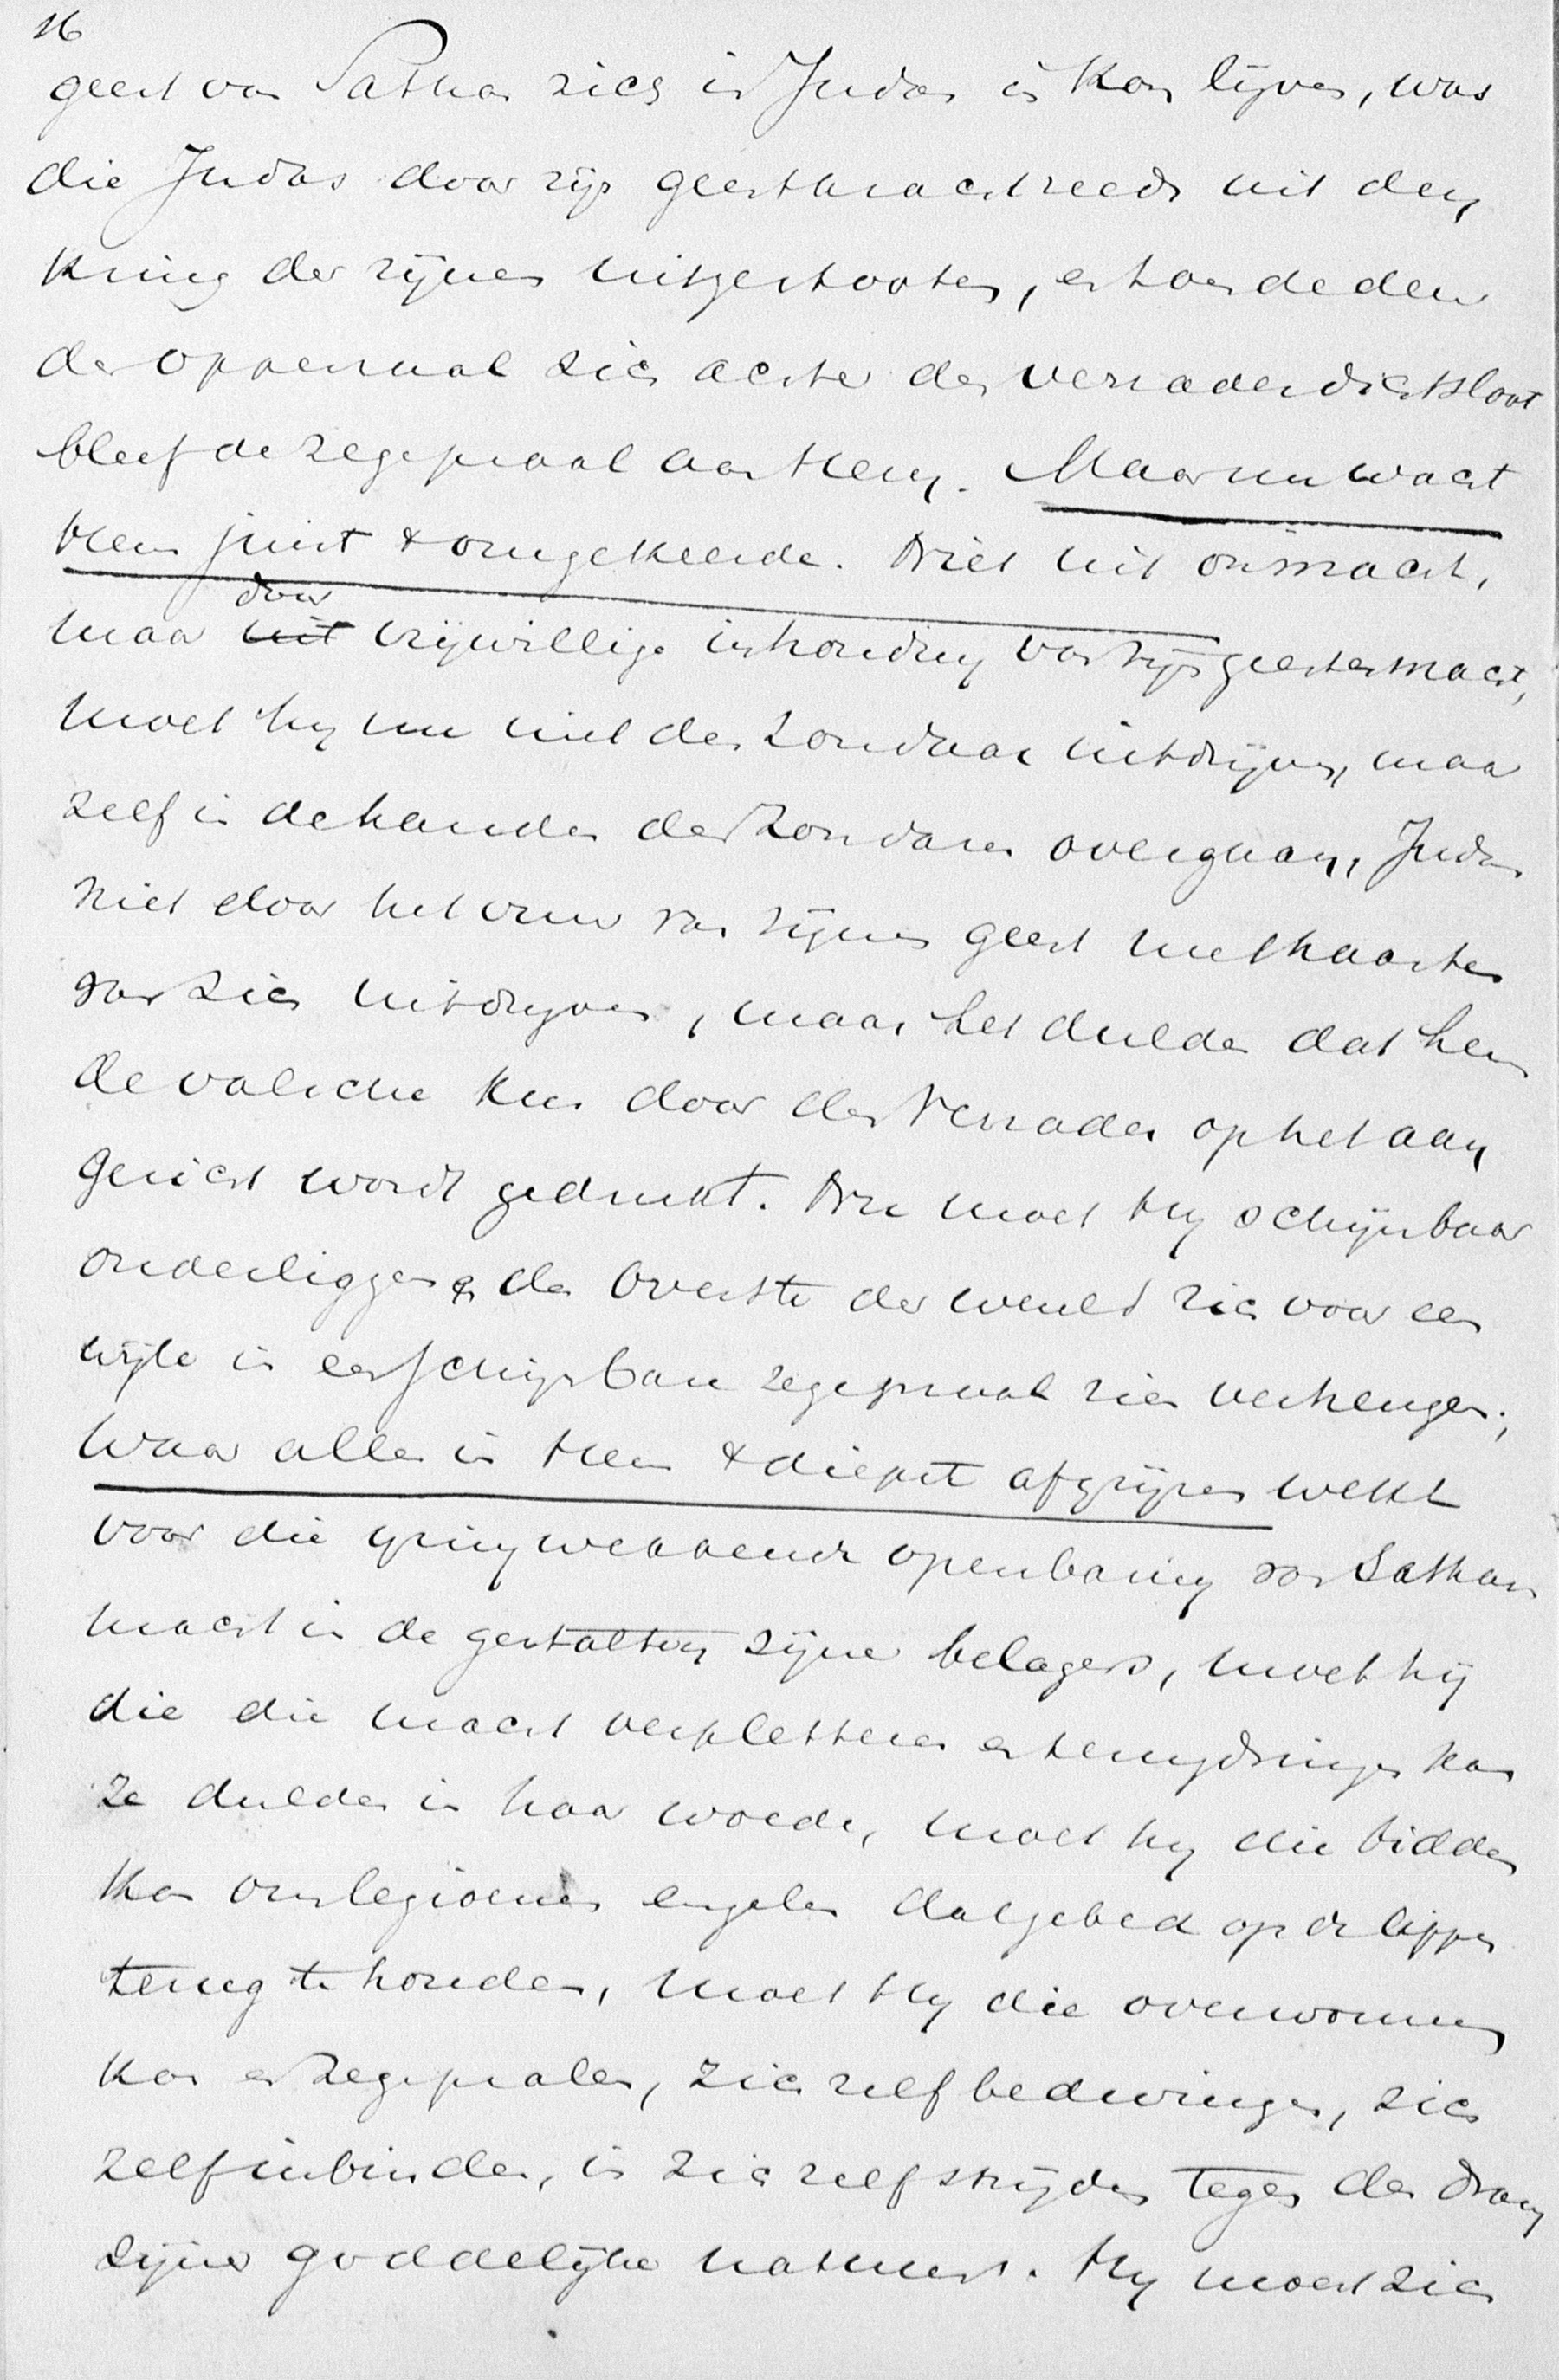 16
geest van Sathan zich in Judas in kon lijven, was
die Judas door zijn geestkracht reeds uit den
kring der zijnen uitgestooten, en toen de deur
der opperzaal zich achter den verrader dichtsloot
bleef de zegepraal aan Hem. Maar nu wacht
Hem juist 't omgekeerde. Niet uit onmacht,
maar door vrijwillige inhouding van zijn geestesmacht,
moet hij nu niet den zondaar uitdrijven, maar
zelf in de handen der zondaren overgaan, Judas
niet door het vuur van zijnen geest met haasten
van zich uitdrijven, maar het dulden dat hem
de valsche kus door den Verrader op het aan
gezicht wordt gedrukt. Nu moet Hij schijnbaar
onderliggen & den Overste der wereld zich voor een
wijle in een schijnbare zegepraal zien verheugen;
Waar alles in Hem 't diepst afgrijzen wekt
voor die ijzingwekkende openbaring van Sathans
macht in de gestalten zijner belagers, moet hij
die die macht verpletteren en terugdringen kan
ze dulden in haar woede, moet hij die bidden
kan om legioenen engelen dat gebed op de lippen
terug te houden, moet Hij die overwinnen
kan en zegepralen, zich zelf bedwingen, zich
zelf inbinden, in zich zelf strijden tegen den drang
zijner goddelijke natuur. Hij moet zich